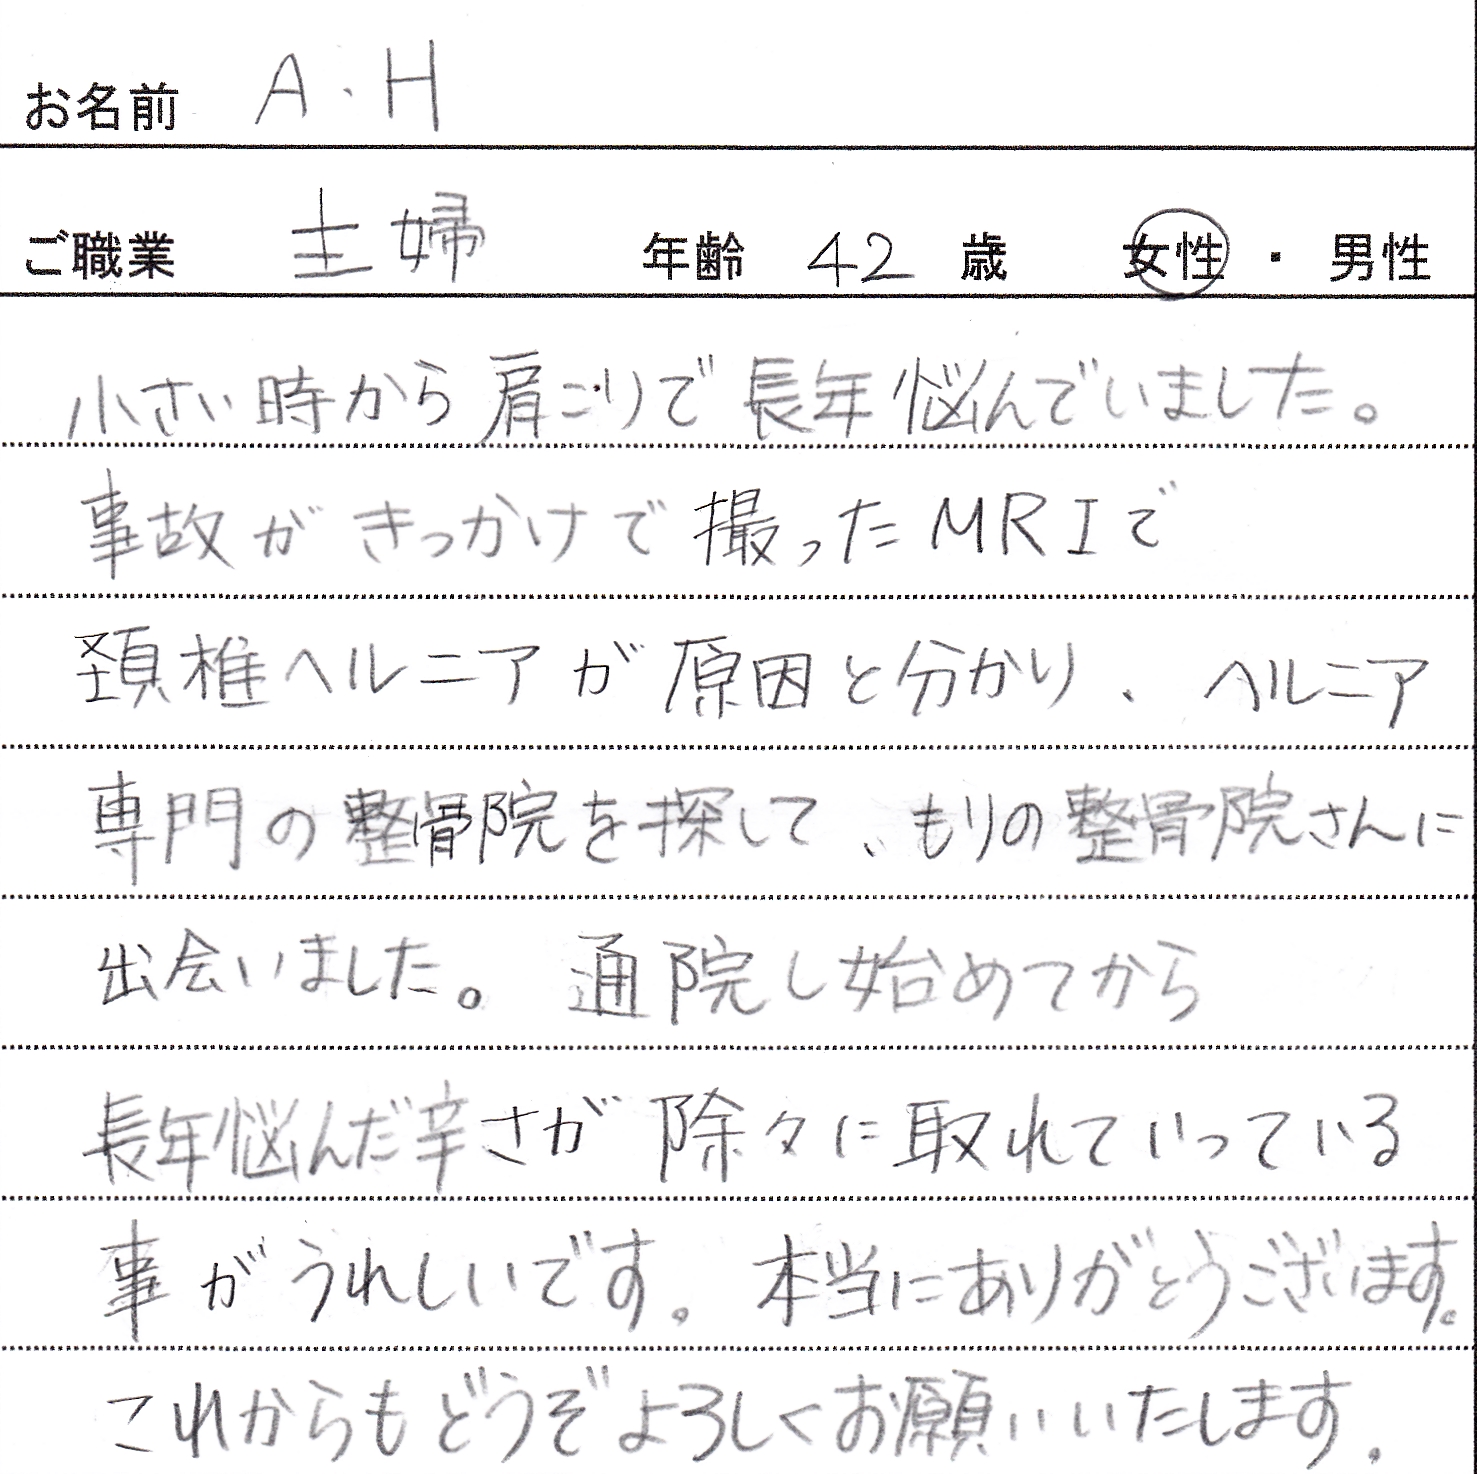 お名前 A・H
ご職業 主婦 年齢 42 歳 女性 ・ 男性
小さい時から肩こりで長年悩んでいました。
事故がきっかけで撮ったMRIで
頚椎ヘルニアが原因と分かり、ヘルニア
専門の整骨院を探して、もりの整骨院さんに
出会いました。通院し始めてから
長年悩んだ辛さが除々に取れていっている
事がうれしいです。本当にありがとうございます。
これからもどうぞよろしくお願いいたします。